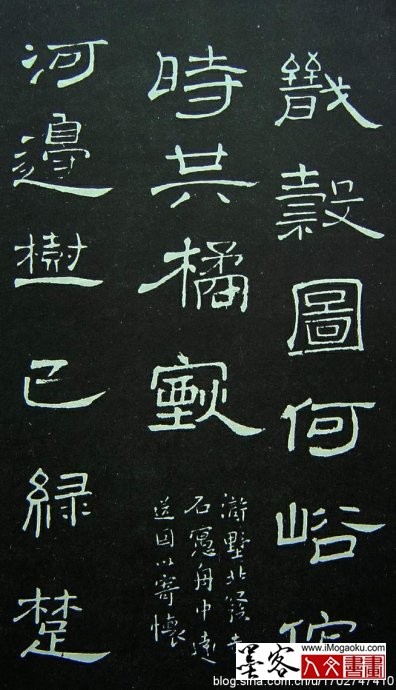 戩穀圖何峪
時共橘
滸墅北
石窻舟中遠
送因以寄懷
河邊樹已綠楚
墨客
www.iMogaoku.com
人文書畫
blog.sina.com.cn/u/1702747410